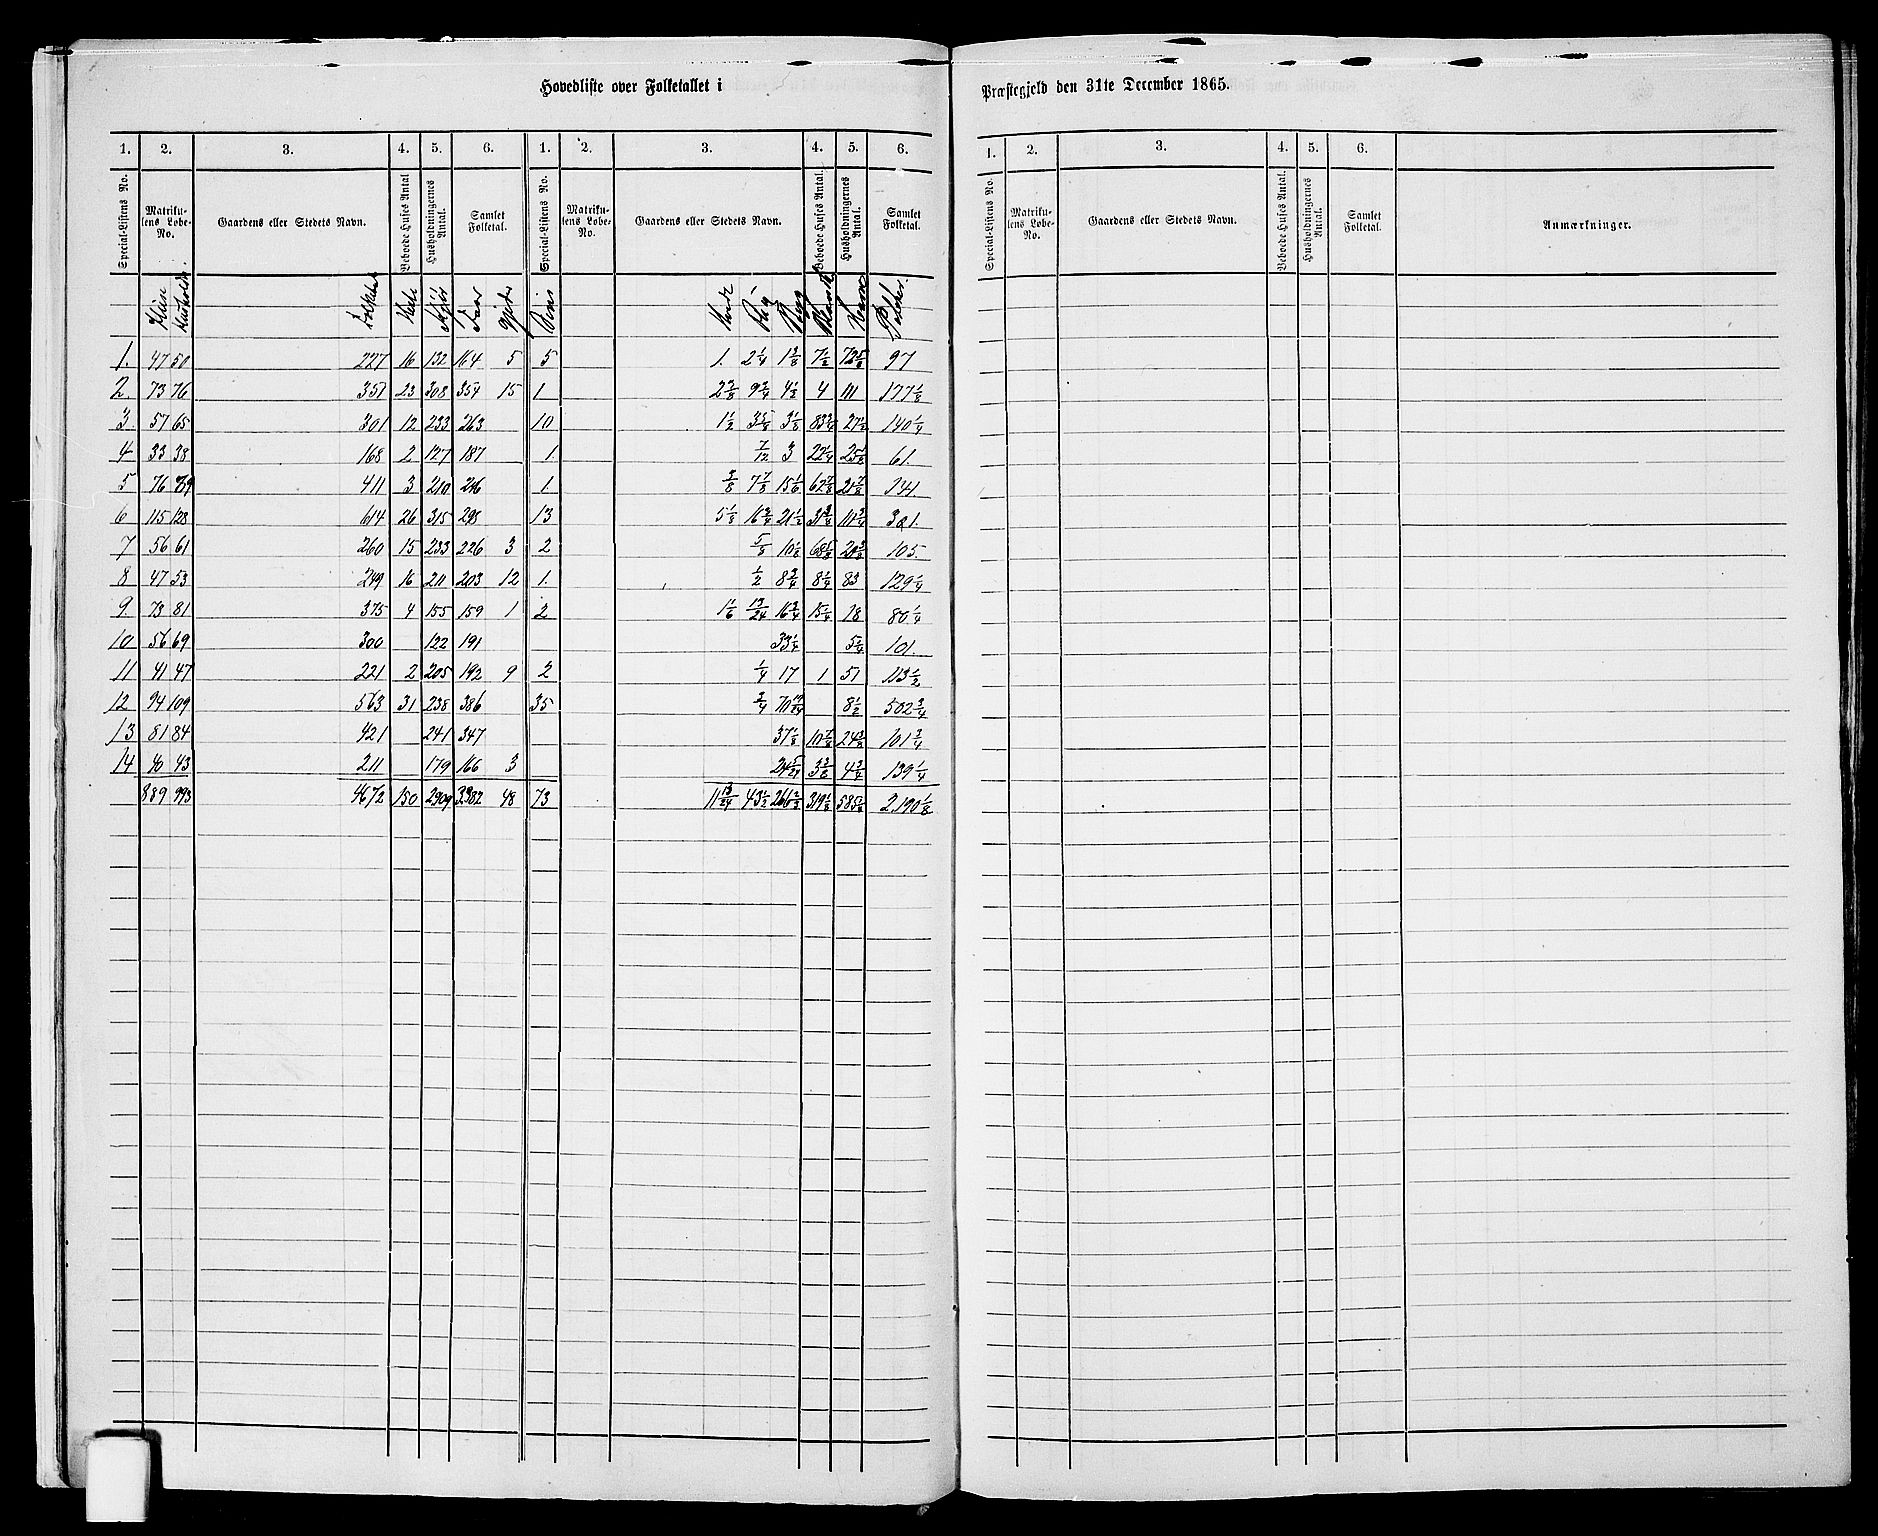 Hovedliste over Folketallet i
1. 2. 3. 4. 5. 6. 1. 2. 3. 4. 5. 6.
Special-Listens No. Matrikulens Løbe-No. Gaardens eller Stedets Navn. Beboede Huses Antal Husholdningernes Antal. Samlet Folketal. Special-Listens No. Matrikulens Løbe-No. Gaardens eller Stedets Navn. Beboede Huses Antal. Husholdningernes Antal. Samlet Folketal.
Huse Folketal Heste Kjør Faar Gjeder Sviin Hvede Rug Byg Havre Poteter
1. 47 50 227 16 132 164 5 5 1. 2 1/4 1 3/8 7 1/2 72 5/8 97
2. 73 76 351 23 308 354 15 1 2 3/8 9 3/4 4 1/2 4 111 177 1/8
3. 57 65 301 12 233 263 10 1 1/2 3 5/8 3 1/8 83 3/4 27 1/2 140 1/4
4 33 38 168 2 127 187 1. 7/12 3 22 1/4 25 1/8 61.
5 76 89 411 3 210 246 1 3/8 7 7/8 15 1/6 62 7/8 21 7/8 134.
6 115 128 614 26 315 298 13 5 1/8 16 3/4 21 1/2 31 3/8 111 3/4 321.
7 56 61 260 15 233 226 3 2 5/8 10 1/8 68 5/8 20 3/8 105.
8 47 53 249 16 211 203 12 1. 1/2 8 3/4 8 1/4 83 129 1/4
9. 73 81 375 4 155 159 1 2 1 1/6 13/24 16 3/4 15 1/4 18 80 1/4
10 56 69 300 122 191 33 1/4 5 3/4 101.
11 41 47 221 2 205 192 9 2 1/4 17 1 51 113 1/2
12 94 109 563 31 238 386 35 3/4 70 19/24 8 1/2 502 3/4
13 81 84 421 241 347 37 1/8 10 7/8 24 3/8 101 3/4
14 40 43 211 179 166 3 24 5/24 3 3/8 4 3/4 139 1/4
889 993 4672 150 2909 3382 48 73 11 13/24 43 1/2 266 2/3 319 1/8 585 1/8 2,190 1/8
Præstegjeld den 31te December 1865.
1. 2. 3. 4. 5. 6.
Special-Listens No. Matrikulens Løbe-No. Gaardens eller Stedets Navn. Beboede Huses Antal. Husholdningernes Antal. Samlet Folketal. Anmærkninger.